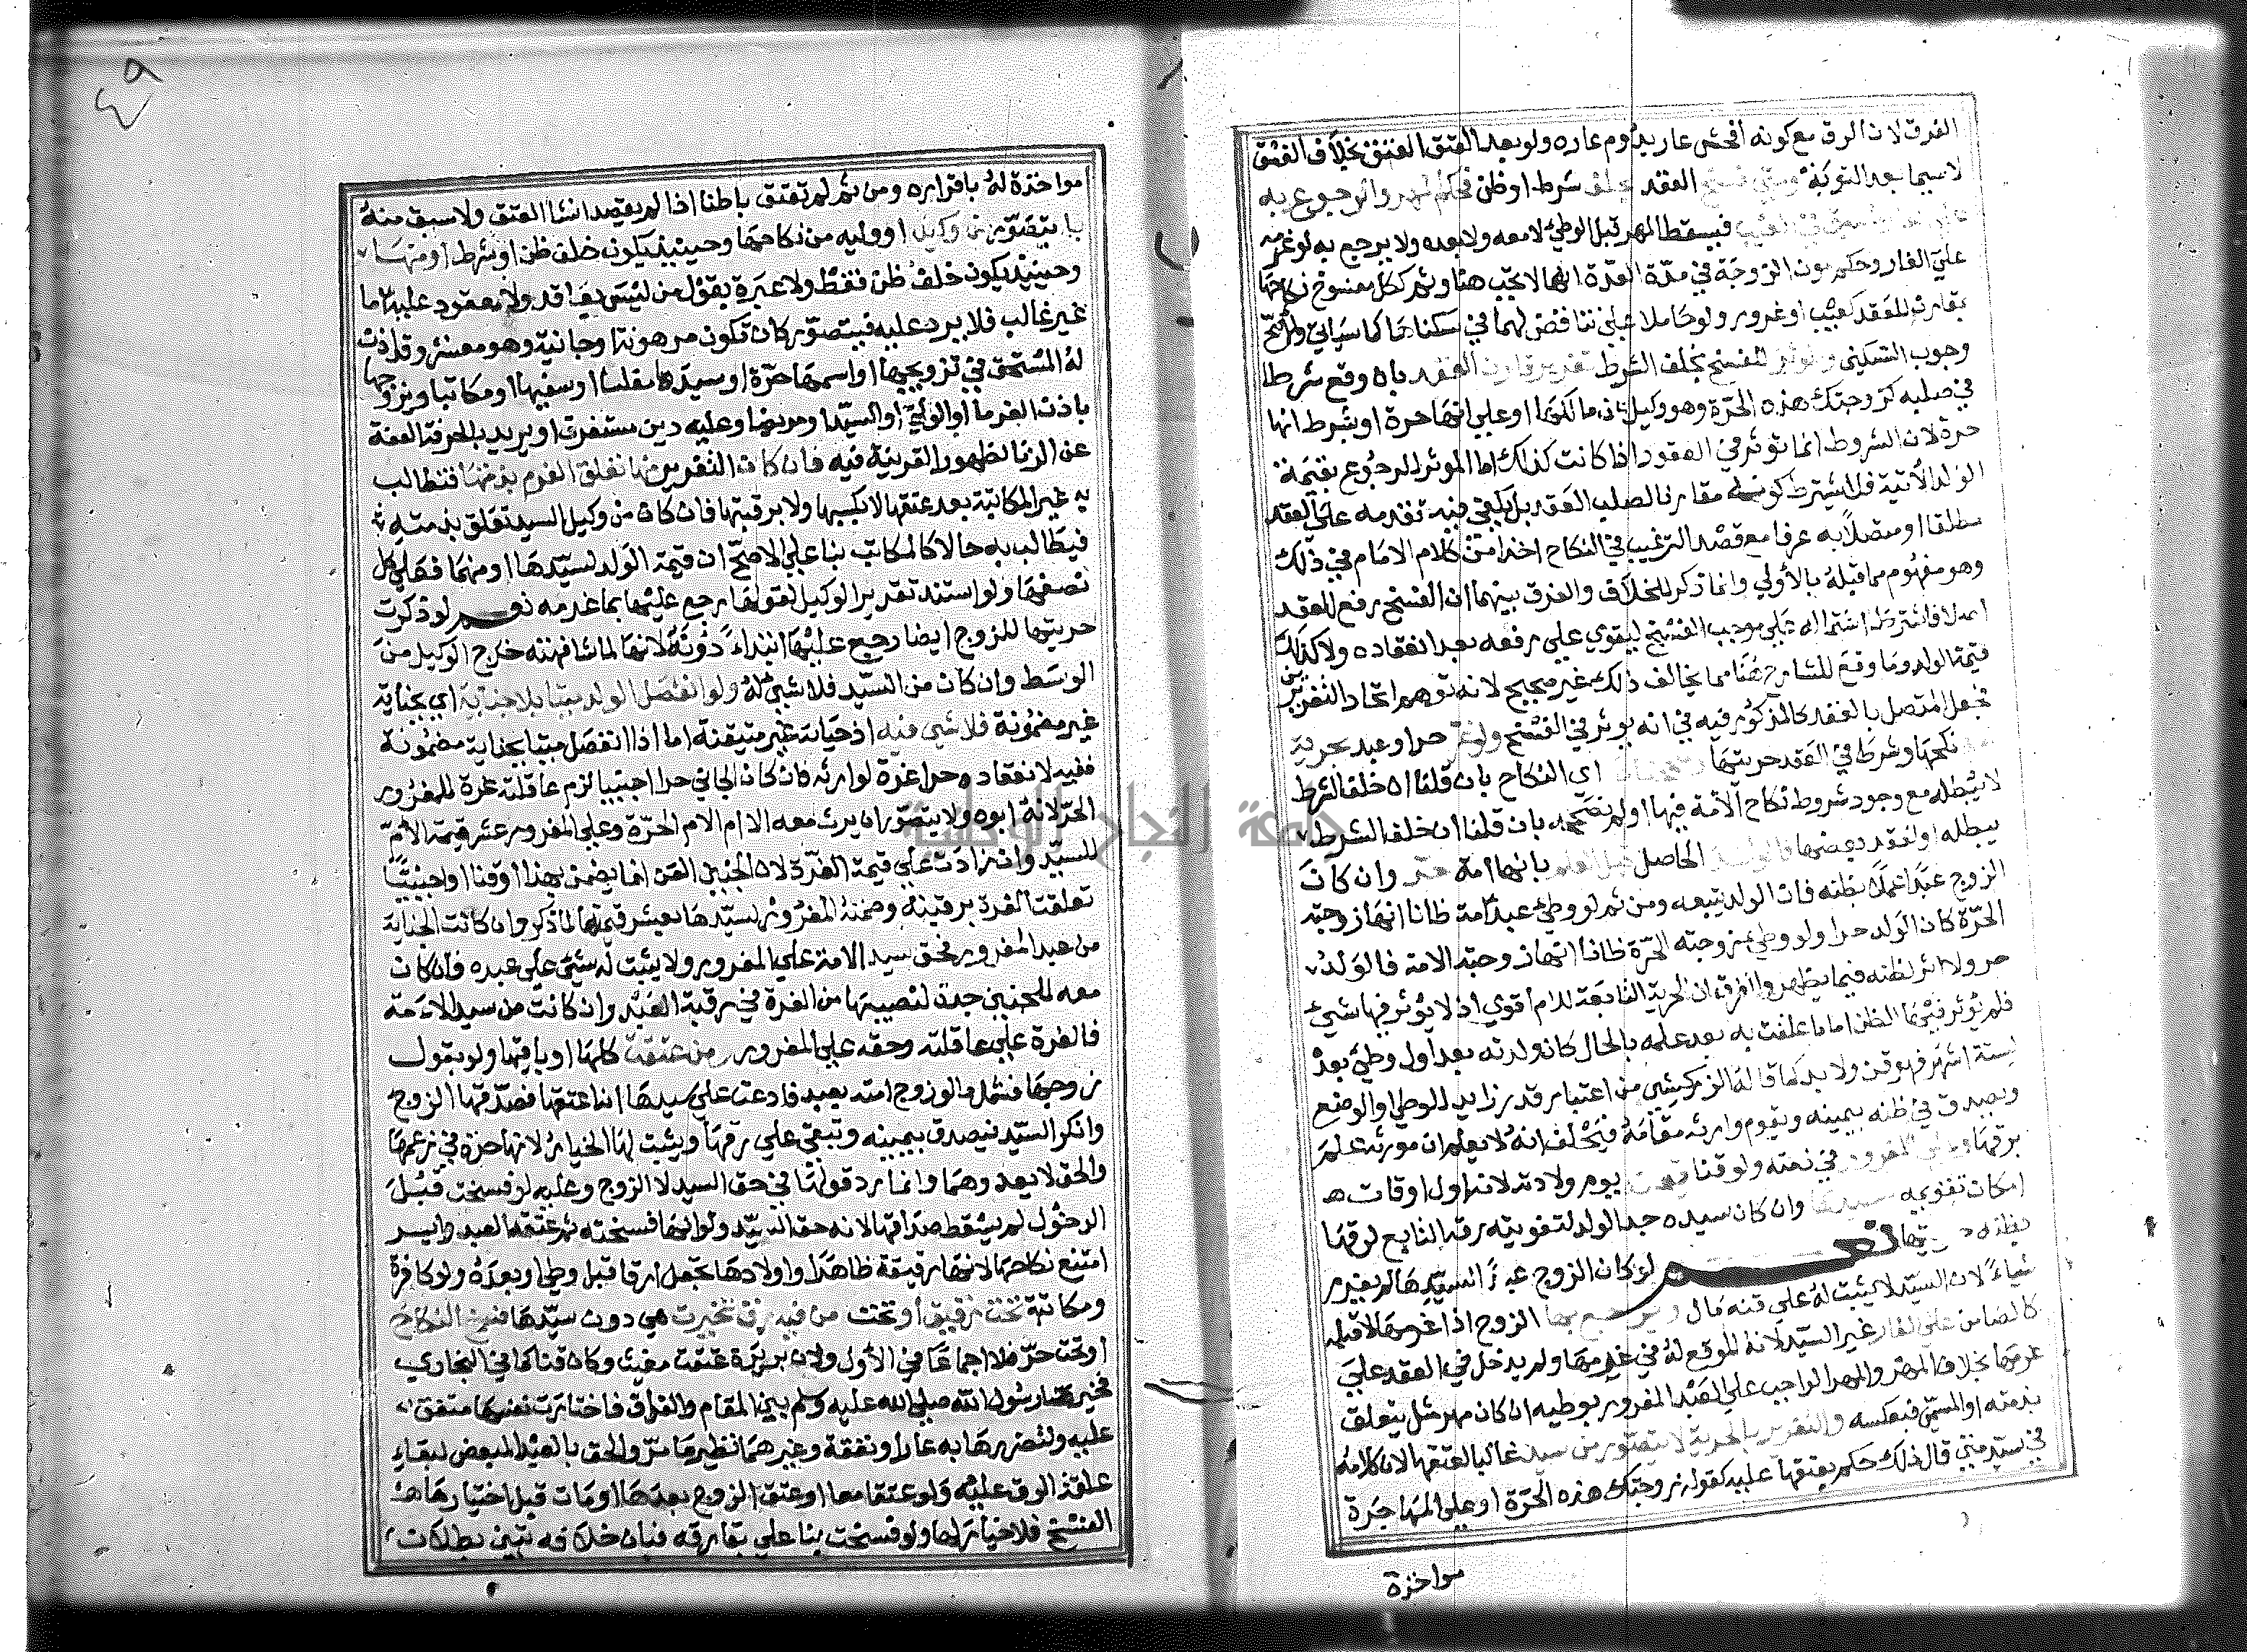 الفرق لان الرق مع كونه افحش عار يدوم عاره ولو بعد العتق بخلاف الفسق
لاسيما بعد التوبة ومتى فسخ العقد بخلف شرط او ظن فحكم المهر والرجوع به
فيسقط المهر قبل الوطئ لا معه ولا بعده ولا يرجع به لو غرمه
علي الغار وحكم مون الزوجة في مدة العدة انها لا تجب هنا وثم ككل مفسوخ نكاحها
بمقارن للعقد كعيب او غرور ولو حاملا علي تناقض لهما في سكناها كما سياتي والاصح
وجوب السكني والموثر للفسخ بخلف الشرط تغرير قارن العقد بان وقع شرطا
في صلبه كزوجتك هذه الحرة وهو وكيل عن مالكها او علي انها حرة او بشرط انها
حرة لان الشروط انما توثر في العقود اذا كانت كذلك اما الموثر للرجوع بقيمة
الولد الاتية فلا يشترط كونه مقارنا لصلب العقد بل يكفي فيه تقدمه علي العقد
مطلقا او متصلا به عرفا مع قصد الترغيب في النكاح اخذا من كلام الامام في ذلك
وهو مفهوم مما قبله بالأولي وانما ذكر للخلاف والفرق بينهما ان الفسخ رفع للعقد
اصلا فاشترط اشتماله علي موجب الفسخ ليقوي علي رفعه بعد انعقاده ولا كذلك
قيمة الولد وما وقع للشارح هنا مما يخالف ذلك غير صحيح لانه توهم اتحاد التغريرين
فجعل المتصل بالعقد كالمذكور فيه في انه يوثر في الفسخ ولو غر حر او عبد بحرية
نكحها وشرط في العقد حريتها اي النكاح بان قلنا ان خلف الشرط
لا يبطله مع وجود شروط نكاح الامة فيها او لم نصححه بان قلنا ان خلف الشرط
يبطله او لفقد بعضها فالولد الحاصل قبل العلم بانها امة حر وان كان
الزوج عبدا عملا بظنه فان الولد يتبعه ومن ثم لو وطئ عبد امة ظانا انها زوجته
الحرة كان الولد حرا ولو وطئ زوجته الحرة ظانا انها زوجته الامة فالولد
حر ولا اثر لظنه فيما يظهر والفرق ان الحرية التابعة للام اقوي اذ لا يوثر فيها شئ
فلم يوثر فيها الظن اما ما علقت به بعد علمه بالحال كان ولدته بعد اول وطئ بعد
لستة اشهر فهو قن ولا بد كما قاله الزركشي من اعتبار قدر زايد للوطي او الوضع
ويصدق في ظنه بيمينه ويقوم وارثه مقامه فيحلف انه لا يعلم ان مورثه علم
برقها وعلي المغرور في ذمته ولو قنا قيمته يوم ولادته لانه اول اوقات
امكان تقويمه لسيدها وان كان سيده جد الولد لتفويته رقه التابع لرقها
بظنه حريتها نعم لو كان الزوج عبدا لسيدها لم يغرم
شياء لان السيد لا يثبت له علي قنه مال ويرجع بها الزوج اذا غرمها لا قبله
كالضامن علي الغار غير السيد لانه الموقع له في غرمها ولم يدخل في العقد علي
غرمها بخلاف المهر والمهر الواجب علي العبد المغرور بوطيه ان كان مهر مثل يتعلق
بذمته او المسمي فبعكسه والتغرير بالحرية لا يتصور من سيد غالبا لعتقها الان كلامه
في سيد متي قال ذلك حكم بعتقها عليه كقوله زوجتك هذه الحرة او علي انها حرة
مواخذة
٤٩
مواخذة له باقراره ومن ثم لم تعتق باطنا اذا لم يقصد انشا العتق ولا سبق منه
بل يتصور من وكيله او وليه من نكاحها وحينيذ يكون خلف ظن او شرط او منها
وحينيذ يكون خلف ظن فقط ولا عبرة بقول من ليس بعاقد ولا معقود عليه اما
غير غالب فلا يرد عليه فيتصور كان تكون مرهونة او جانية وهو معسر وقد اذن
له المستحق في تزويجها او اسمها حرة او سيدها مفلسا او سفيها او مكاتبا ويزوجها
باذن الغرما او الولي او السيد او مريضا وعليه دين مستغرق او يريد بالحرية العفة
عن الزنا لظهور القرينة فيه فان كان التغرير منها تعلق الغرم بذمتها فتطالب
به غير المكاتبة بعد عتقها لا بكسبها ولا برقبتها فان كان من وكيل السيد تعلق بذمته
فيطالب به حالا كالمكاتب بنا علي الاصح ان قيمة الولد لسيدها او منهما فعلي كل
نصفها ولو استند تغرير الوكيل لقولها رجع عليها بما غرمه نعم لو ذكرت
حريتها للزوج ايضا رجع عليها ابتداء دونه لانها لما شافهته خرج الوكيل من
الوسط وان كان من السيد فلا شئ له ولو انفصل الولد ميتا بلا جناية اي بجناية
غير مضمونة فلا شئ فيه اذ حياته غير متيقنة اما اذا انفصل ميتا بجناية مضمونة
ففيه لانعقاده حرا غرة لوارثه فان كان الجاني حرا اجنبيا لزم عاقلته غرة للمغرور
الحر لانه ابوه ولا يتصور ان يرث معه الا ام الام الحرة وعلي المغرور عشر قيمة الام
للسيد وان زادت علي قيمة الغرة لان الجنين القن انما يضمن بهذا او قنا اجنبيا
تعلقت الغرة برقبته وضمنه المغرور لسيدها بعشر قيمتها لما ذكر وان كانت الجناية
من عبد المغرور فحق سيد الامة علي المغرور ولا يثبت له شئ علي عبده فان كان
معه للجنين جدة لنصيبها من الغرة في رقبة العبد وان كانت من سيد للاءمة
فالغرة علي عاقلته وحقه علي المغرور ومن عتقت كلها او باقيها ولو بقول
زوجها فشمل ما لو زوج امته بعبد فادعت علي سيدها انه اعتقها فصدقها الزوج
وانكر السيد فيصدق بيمينه وتبقي علي رقها ويثبت لها الخيار لانها حرة في زعمها
والحق لا يعدوهما وانما رد قولها في حق السيد لا الزوج وعليه لو فسخت قبل
الدخول لم يسقط صداقها لانه حق السيد ولو انها فسخته ثم عتق العبد وايسر
امتنع نكاحها لانها رقيقة ظاهرا واولادها تجعل ارقا قبل وطئ او بعده ولو كافرة
ومكاتبة تحت رقيق او تحت من فيه رق تخيرت هي دون سيدها فسخ النكاح
او تحت حر فلا اجماعا في الأول ولان بريرة عتقت تحت مغيث وكان قنا كما في البخاري
فخيرها رسول الله صلي الله عليه وسلم بين المقام والفراق فاختارت نفسها متفق
عليه ولتضررها به عارا ونفقة وغيرهما نظير ما مر والحق بالعبد المبعض لبقاء
علقة الرق عليه ولو عتقا معا او عتق الزوج بعدها او مات قبل اختيارها
الفسخ فلا خيار لها ولو فسخت بنا علي بقا رقه فبان خلافه تبين بطلان